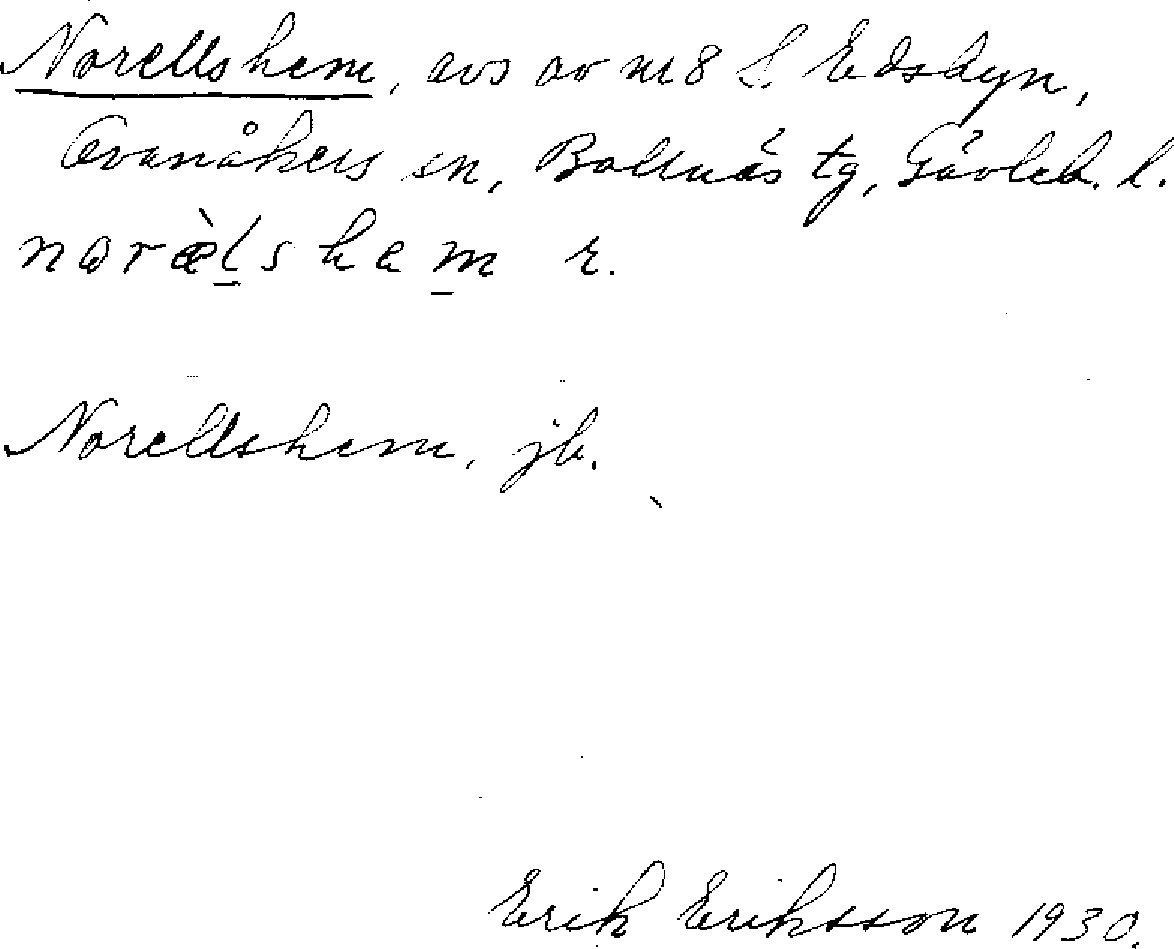 Norellshem, avs av nr 8 i Edsbyn,
Ovanåkers sn, Bollnäs tg, Gävleb. l.
noræ̀l̠shem̠ r.
Norellshem, jb.
Erik Eriksson 1930.